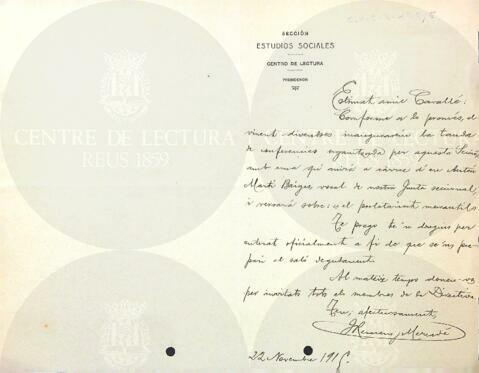 SECCIÓN
ESTUDIOS SOCIALES
CENTRO DE LECTURA
PRESIDENCIA
Estimat amic Cavallé:
Conforme a lo promés, el
vinent divendres inaugurarém la tanda
de conferencies organitzada per aquesta Secció
amb una qué anirá a cárrec d'en Antón
Martí Baiges, vocal de nostra Junta seccional,
i versará sobre: el proletariat mercantil
Te prego te'n dongues per
enterat oficialment a fi de que se'ns pre-
pari el saló degudament.
Al mateix temps doneu-vos
per invitats tots els membres de la Directiva.
Teu, afectuosament,
22 Novembre
CENTRE DE LECTURA
REUS 1859